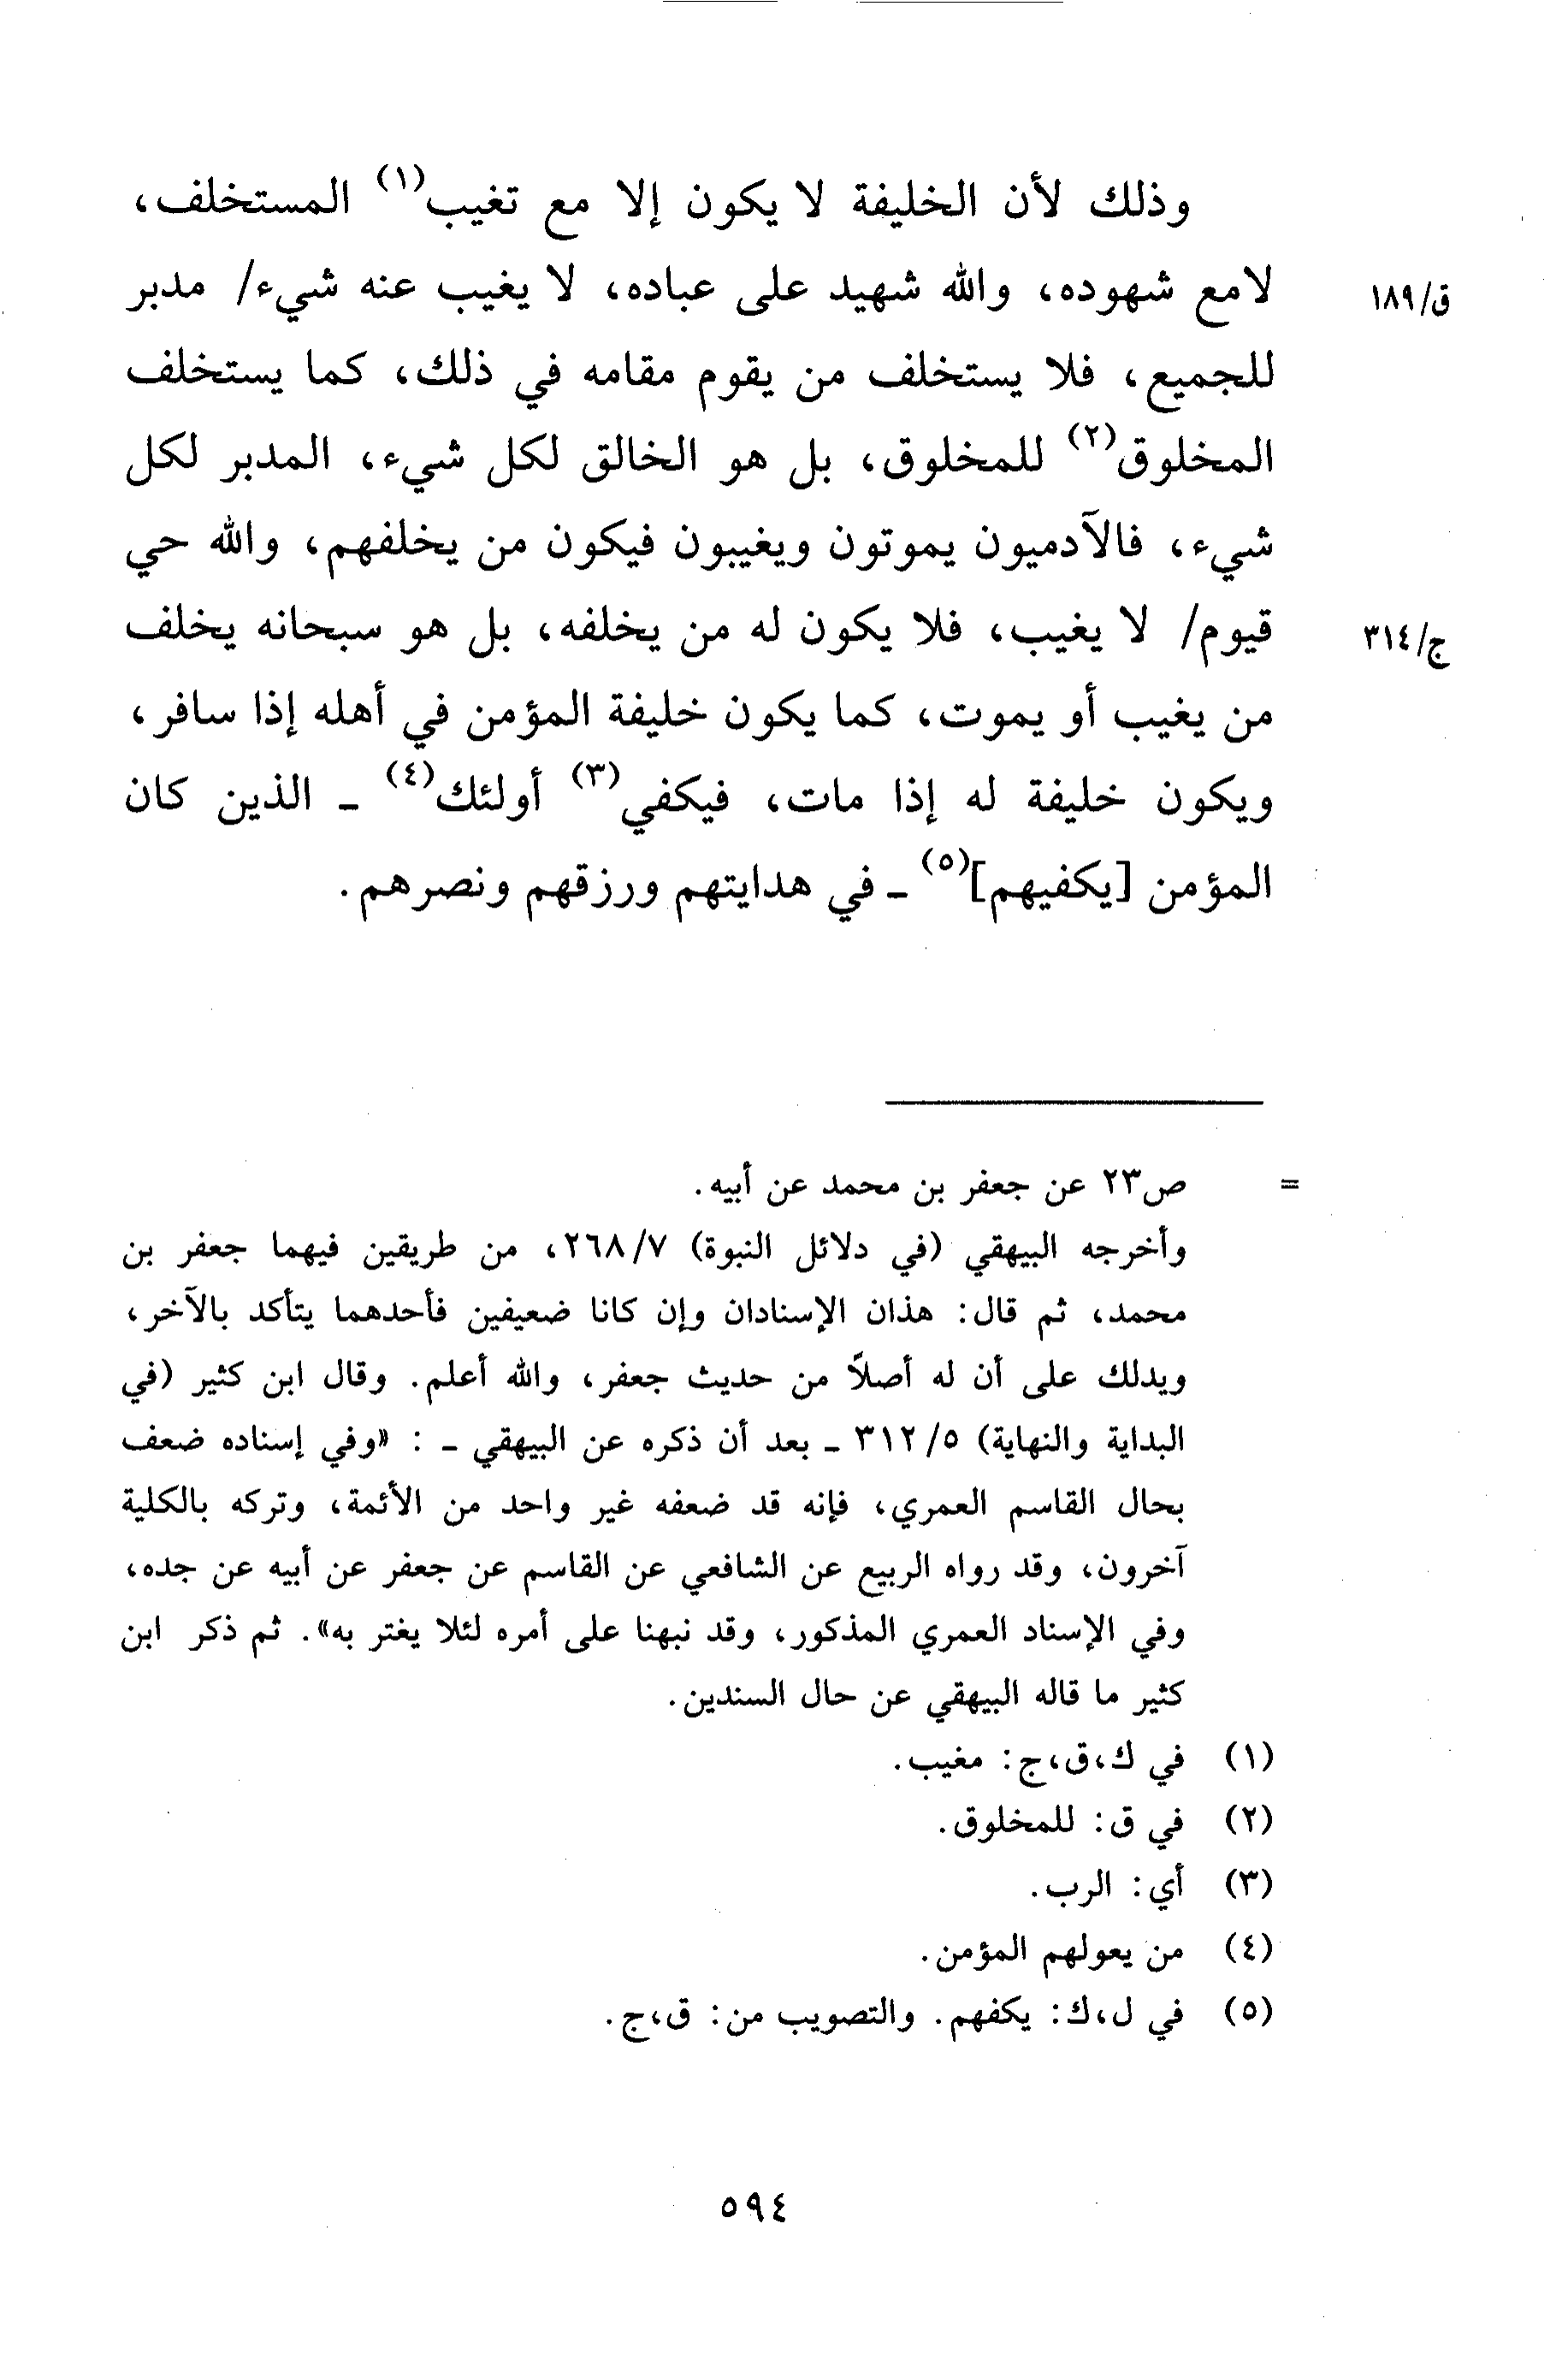 وذلك لأن الخليفة لا يكون إلا مع تغيب(١) المستخلف،
لامع شهوده، والله شهيد على عباده، لا يغيب عنه شيء/ مدبر
ق/١٨٩
للجميع، فلا يستخلف من يقوم مقامه في ذلك، كما يستخلف
المخلوق(٢) للمخلوق، بل هو الخالق لكل شيء، المدبر لكل
شيء، فالآدميون يموتون ويغيبون فيكون من يخلفهم، والله حي
قيوم/ لا يغيب، فلا يكون له من يخلفه، بل هو سبحانه يخلف
ج/٣١٤
من يغيب أو يموت، كما يكون خليفة المؤمن في أهله إذا سافر،
ويكون خليفة له إذا مات، فيكفي(٣) أولئك(٤) - الذين كان
المؤمن [يكفيهم](٥) - في هدايتهم ورزقهم ونصرهم.
= ص٢٣ عن جعفر بن محمد عن أبيه.
وأخرجه البيهقي (في دلائل النبوة) ٢٦٨/٧، من طريقين فيهما جعفر بن
محمد، ثم قال: هذان الإسنادان وإن كانا ضعيفين فأحدهما يتأكد بالآخر،
ويدلك على أن له أصلاً من حديث جعفر، والله أعلم. وقال ابن كثير (في
البداية والنهاية) ٣١٢/٥ - بعد أن ذكره عن البيهقي - : «وفي إسناده ضعف
بحال القاسم العمري، فإنه قد ضعفه غير واحد من الأئمة، وتركه بالكلية
آخرون، وقد رواه الربيع عن الشافعي عن القاسم عن جعفر عن أبيه عن جده،
وفي الإسناد العمري المذكور، وقد نبهنا على أمره لئلا يغتر به». ثم ذكر ابن
كثير ما قاله البيهقي عن حال السندين.
(١) في ك،ق،ج: مغيب.
(٢) في ق: للمخلوق.
(٣) أي: الرب.
(٤) من يعولهم المؤمن.
(٥) في ل،ك: يكفهم. والتصويب من: ق،ج.
٥٩٤